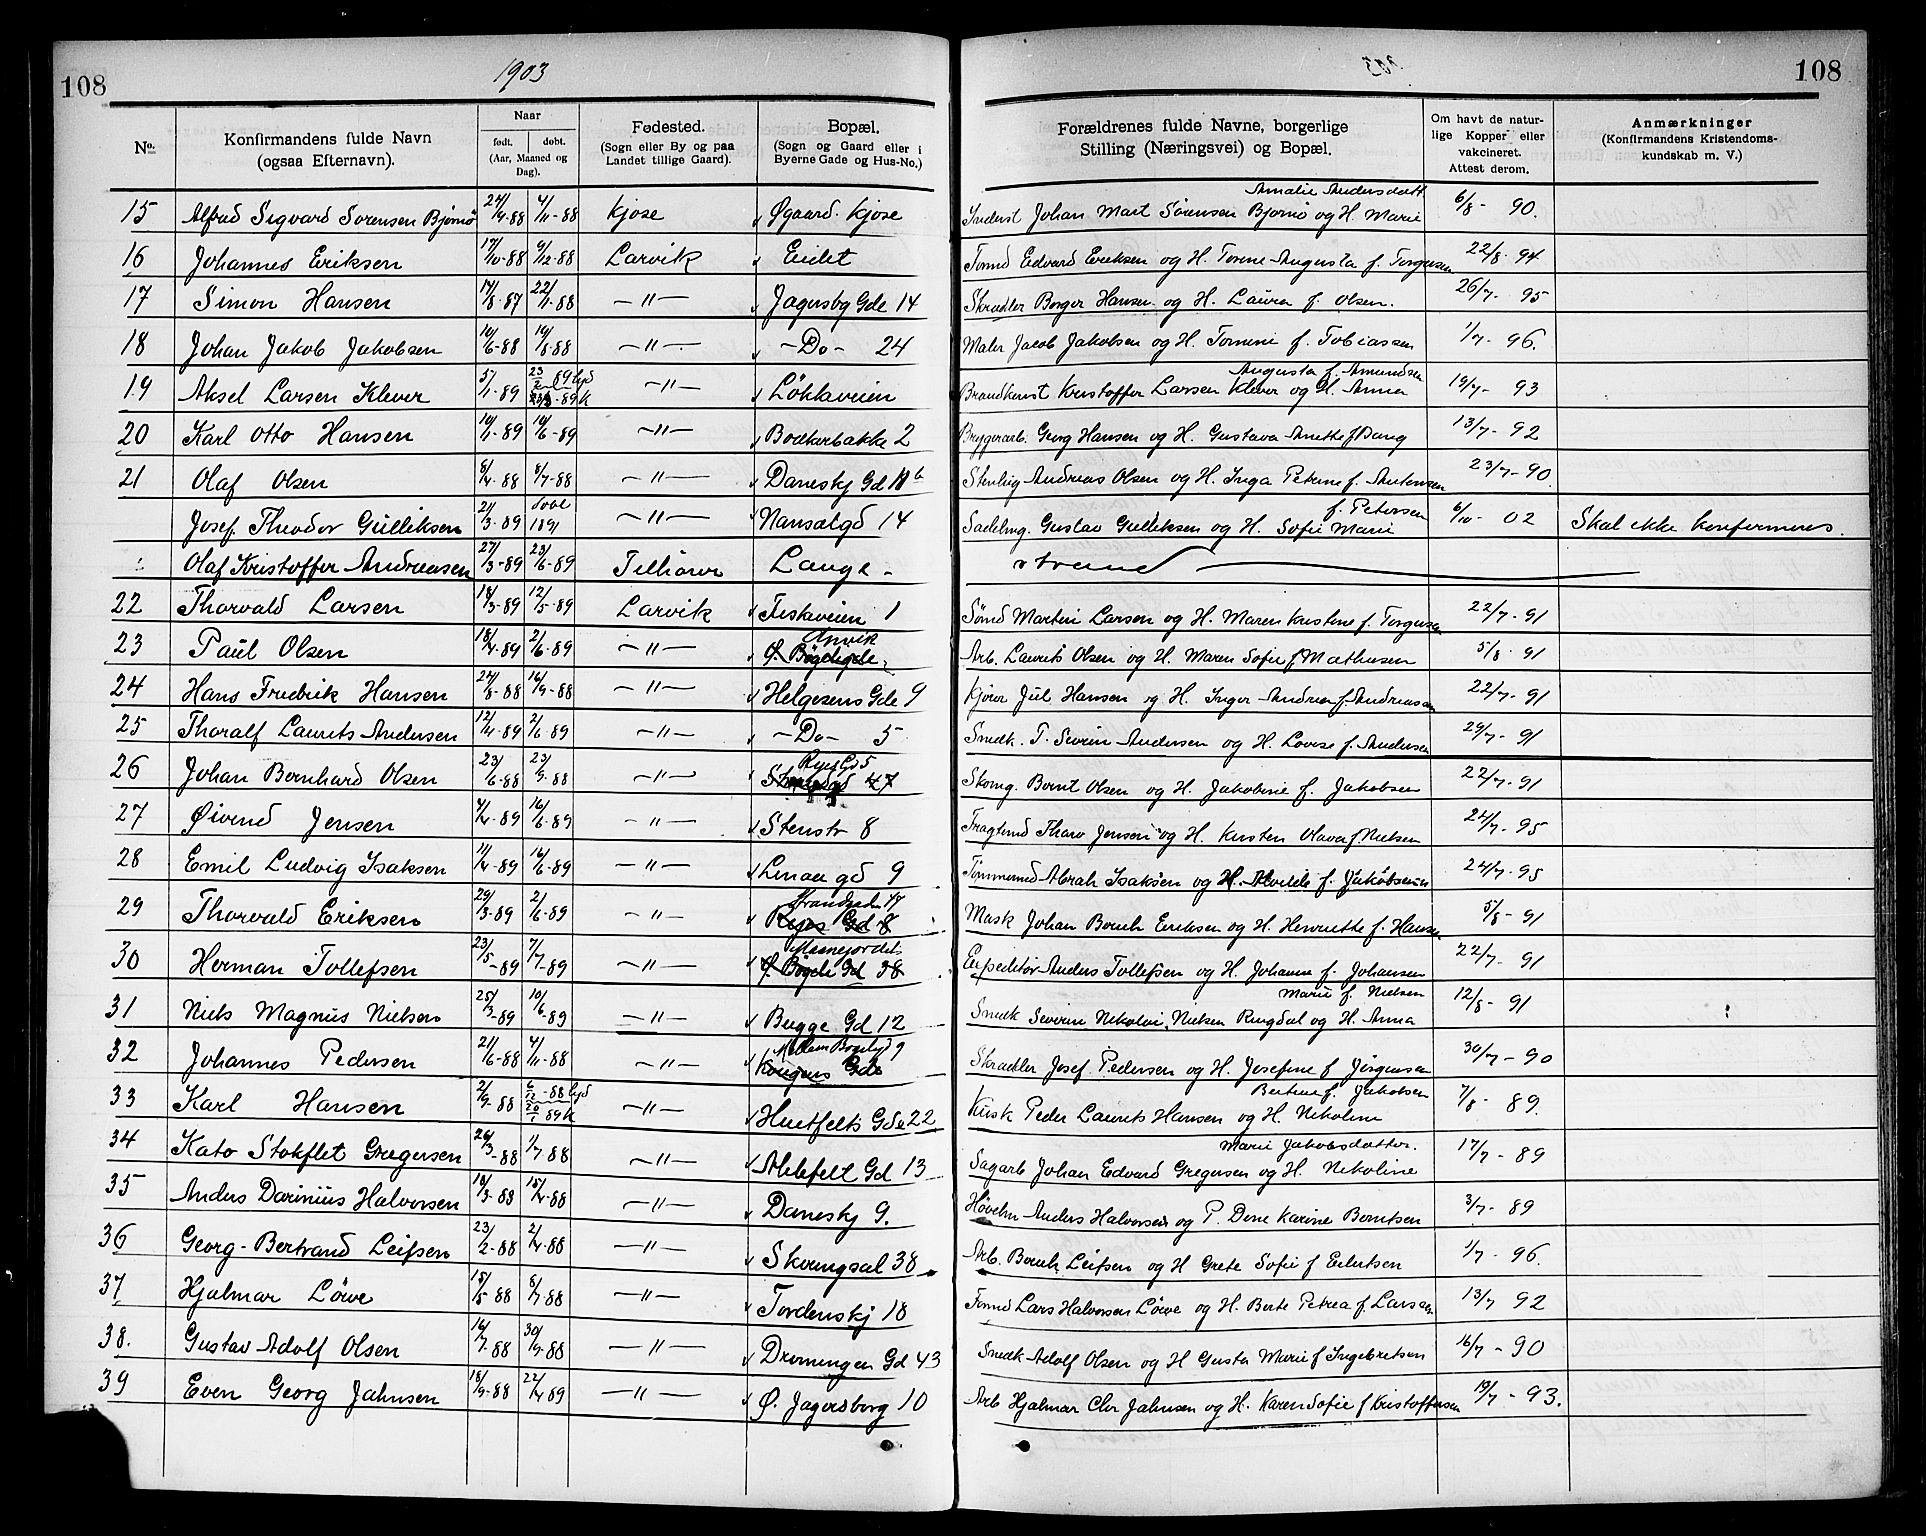 108
1903
108
No.
Konfirmandens fulde Navn (ogsaa Efternavn).
Naar
født. døbt.
(Aar, Maaned og Dag).
Fødested.
(Sogn eller By og paa Landet tillige Gaard).
Bopæl.
(Sogn og Gaard eller i Byerne Gade og Hus-No.)
Forældrenes fulde Navne, borgerlige Stilling (Næringsvei) og Bopæl.
Om havt de naturlige Kopper eller vakcineret. Attest derom.
Anmærkninger
(Konfirmandens Kristendomskundskab m. V.)
15 Alfred Sigvard Sorensen Bjørnø 24/9-88 4/11-88 Kjose Øgaard Kjose Inderst Johan Mart Sörensen Bjornö og H. Marie Amalie Andersdatt 6/8-90.
16 Johannes Eriksen 17/10-88 9/12-88 Larvik Eidet Tømd Edvard Eriksen og H. Torine Augusta f. Torgersen 22/8-94
17 Simon Hansen 17/8-87 22/1-88 -"- Jagersbg Gde 14 Skrædder Borger Hansen og H. Laura f. Olsen. 26/7-95
18 Johan Jakob Jakobsen 10/6-88 19/8-88 -"- -Do- 24 Maler Jacob Jakobsen og H. Tomine f. Tobiassen 1/7-96.
19 Aksel Larsen Klever 5/1-89 23/2-89 hjd -89 K -"- Løkkaveien Brandkonst Kristoffer Larsen Klever og H. Anna Augusta f. Amundsen 19/7-93
20 Karl Otto Hansen 10/1-89 10/6-89 -"- Bödkerbakke 2 Bryggerarb. Georg Hansen og H. Gustava Anette f Bang 13/7-92
21 Olaf Olsen 8/4-88 8/7-88 -"- Daneskj Gd 11 b Stenhug Andreas Olsen og H. Inga Petrine f. Antonsen 23/7-90
Josef Theodor Gulliksen 21/3-89 1891 -"- Nansetgd 14 Sadelmg. Gustav Gulliksen og H. Sofie Marie f. Petersen 6/10-02 Skal ikke konfirmeres.
Olaf Kristoffer Andreasen 27/3-89 23/6-89 Lange-
22 Thorvald Larsen 18/3-89 12/5-89 Larvik Feskaveien 1 Sömd Martin Larsen og H. Maren Kristine f. Torgersen 22/7-91
23 Paul Olsen 18/4-89 2/6-89 -"- Anvik Ø. Bögeligde Arb. Laurits Olsen og H. Maren Sofie f Mathisen 5/8-91
24 Hans Fredrik Hansen 24/8-88 16/9-88 -"- Helgesens Gde 9 Kjører Jul Hansen og H. Inger Andrea f. Andreasen 22/7-91
25 Thoralf Laurits Andersen 12/4-89 2/6-89 -"- -Do- 5 Smedk. T. Severin Andersen og H. Lovise f. Andersen 29/7-91
26 Johan Bernhard Olsen 23/6-88 23/9-88 -"- Ryes Gd 5 Strandgd 47 Skomg. Bernt Olsen og H. Jakobine f. Jakobsen 22/7-91
27 Øivend Jensen 4/4-89 16/6-89 -"- Stenstr 8 Fragtemd Tharv Jensen og H. Kirsten Olava f. Nielsen 24/7-95
28 Emil Ludvig Isaksen 11/4-89 16/6-89 -"- Linaa gd 9 Tömmermd Abrah Isaksen og H. Alvilde f. Jakobsen 24/7-95
29 Thorvald Eriksen 29/3-89 2/6-89 -"- Strandgaden 47 Ryes Gd 8 Mask Johan Bernh Eriksen og H. Henriette f. Hansen 5/8-91
30 Herman Tollefsen 23/5-89 7/7-89 -"- Mannejordet Ø. Bögeli Gd 38 Expeditør Anders Tollefsen og H. Johanne f. Johansen 22/7-91
31 Niels Magnus Nielsen 25/3-89 10/6-89 -"- Bugge Gd 12 Smedk Severin Nikolai Nielsen Ringdal og H. Anna Marie f. Nielsen 12/8-91
32 Johannes Pedersen 21/6-88 4/11-88 -"- Kongens Gde Skrædder Josef Pedersen og H. Josefine f Jörgensen 30/7-90
33 Karl Hansen 2/9-88 6/12-88 hjd 20/1 89 K -"- Huitfelts Gde 22 Kusk Peder Laurits Hansen og H. Nikoline Bertine f. Jakobsen 7/8-89.
34 Kato Stokflet Gregersen 26/3-88 1/7 88 -"- Ahlefelt Gd 13 Sagarb Johan Edvard Gregersen og H. Nikoline Marie Jakobsdatter. 17/7-89
35 Anders Darinius Halvorsen 18/3-88 15/4-88 -"- Daneskj 9. Høvelm Anders Halvorsen og P. Dene Karine Berntsen 3/7-89
36 Georg-Bertrand Leifsen 23/2-88 2/4-88 -"- Skiringsal 38 Arb. Bernh Leifsen og H Grete Sofie f Eilertsen 1/7-96.
37 Hjalmar Löwe 15/5 88 8/7-88 -"- Tordenskj 18 Tømd Lars Halvorsen Löwe og H. Berte Petrea f. Larsen 13/7 92
38. Gustav Adolf Olsen 16/7-88 30/9-88 -"- Dronningen Gd 43 Smedk Adolf Olsen og H Gusta Marie f Ingebretsen 16/7-90
39 Even Georg Jahnsen 18/9-88 22/4 89 -"- Ø. Jagersborg 10 Arb Hjalmar Chr Jahnsen og H. Karen Sofie f Kristoffersen 19/7-93.